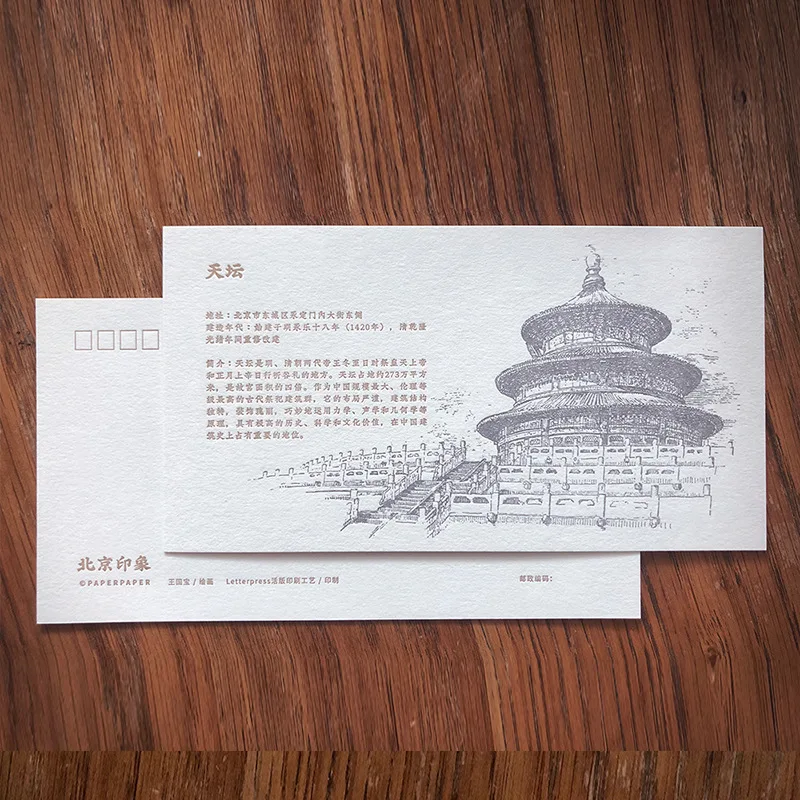 天坛
地址：北京市东城区永定门内大街东侧
建造年代：始建于明永乐十八年（1420年），清乾隆
光绪年间重修改建
简介：天坛是明、清朝两代帝王冬至日时祭皇天上帝
和正月上辛日行祈谷礼的地方。天坛占地约273万平方
米，是故宫面积的四倍。作为中国规模最大、伦理等
级最高的古代祭祀建筑群，它的布局严谨，建筑结构
独特，装饰瑰丽，巧妙地运用力学、声学和几何学等
原理，具有极高的历史、科学和文化价值，在中国建
筑史上占有重要的地位。
北京印象
©PAPERPAPER 王国宝 / 绘画 Letterpress活版印刷工艺 / 印制 邮政编码：